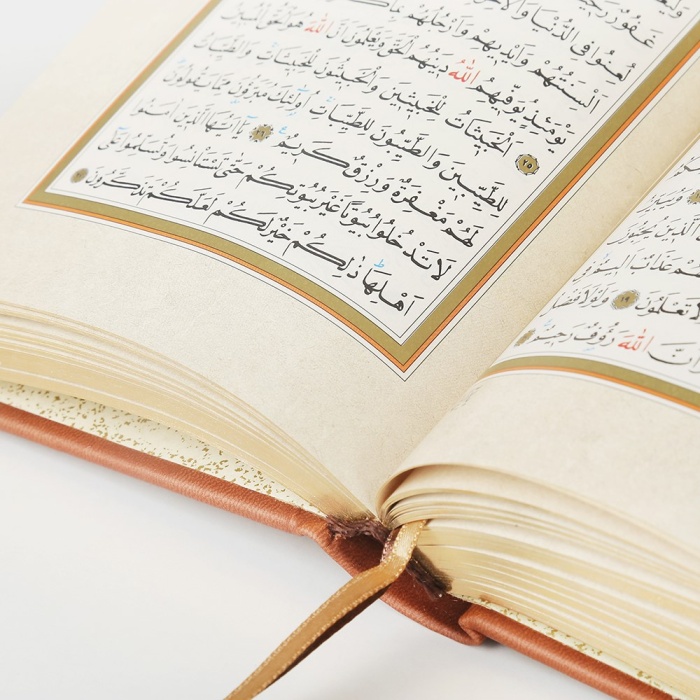 الَّذِينَ يُحِبُّونَ
عَذَابٌ اَلِيمٌ فِى
لَا تَعْلَمُونَ ١٩ وَلَوْلَا فَضْلُ
وَاَنَّ اللهَ رَؤُفٌ رَحِيمٌ
غَفُورٌ رَحِيمٌ
لُعِنُوا فِى الدُّنْيَا
اَلْسِنَتُهُمْ وَاَيْدِيهِمْ وَاَرْجُلُهُمْ بِمَا
يَوْمَئِذٍ يُوَفِّيهِمُ اللهُ دِينَهُمُ الْحَقَّ وَيَعْلَمُونَ اَنَّ اللهَ هُوَ الْحَقُّ الْمُبِينُ
٢٥ اَلْخَبِيثَاتُ لِلْخَبِيثِينَ وَالْخَبِيثُونَ لِلْخَبِيثَاتِ وَالطَّيِّبَاتُ
لِلطَّيِّبِينَ وَالطَّيِّبُونَ لِلطَّيِّبَاتِ اُولٰئِكَ مُبَرَّؤُنَ مِمَّا يَقُولُونَ
لَهُمْ مَغْفِرَةٌ وَرِزْقٌ كَرِيمٌ ٢٦ يَا اَيُّهَا الَّذِينَ اٰمَنُوا
لَا تَدْخُلُوا بُيُوتًا غَيْرَ بُيُوتِكُمْ حَتّٰى تَسْتَأْنِسُوا وَتُسَلِّمُوا عَلٰى
اَهْلِهَا ذٰلِكُمْ خَيْرٌ لَكُمْ لَعَلَّكُمْ تَذَكَّرُونَ